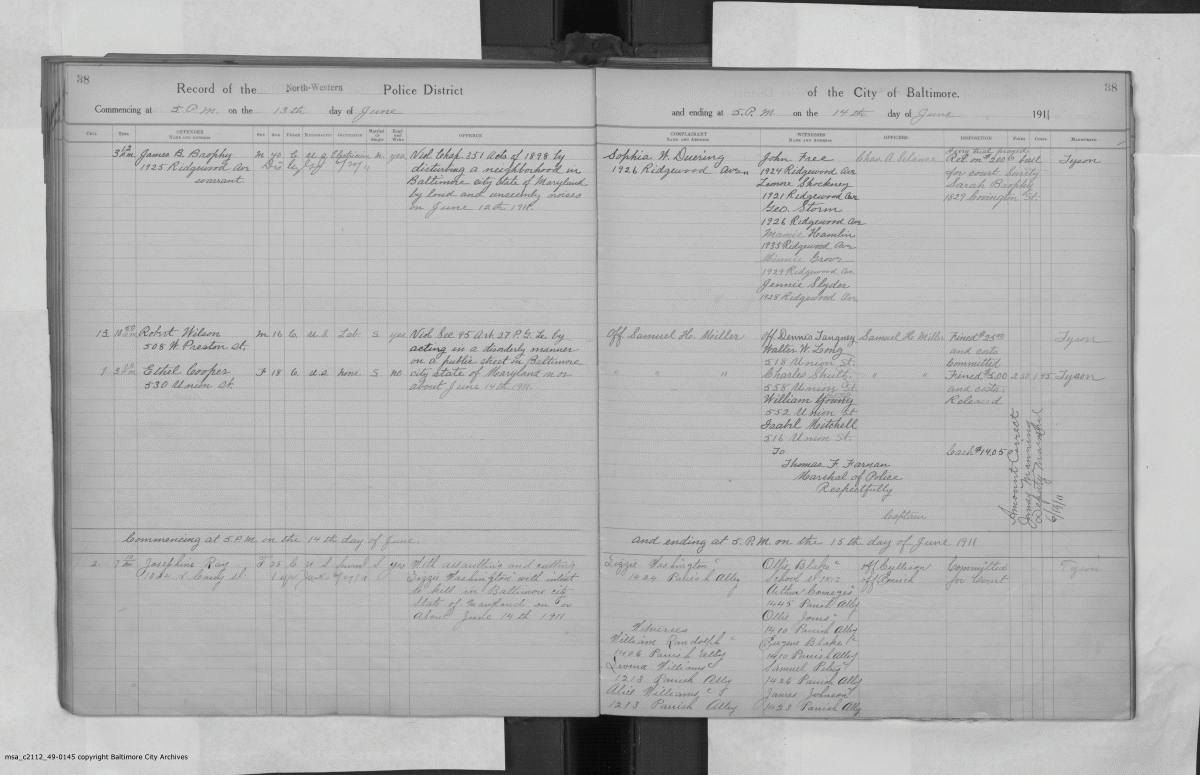 38
Record of the North-Western Police District
Commencing at 5 P.M. on the 13th day of June
CELL TIME OFFENDER NAME AND ADDRESS SEX AGE COLOR NATIONALITY OCCUPATION Married or Single Read and Write OFFENCE
James B. Brophy M 42 C U.S. M. yes Viol Chap 251 Acts of 1898 by
1925 Ridgewood Av disturbing a neighborhood in
warrant Baltimore city State of Maryland
by loud and unseemly noises
on June 12th 1911.
13 Robert Wilson M 16 C. U.S. Lab. S yes Viol Sec 95 Art 27 P.G.L. by
508 W Preston St. acting in a disorderly manner
on a public street in Baltimore
1 Ethel Cooper F 18 C U.S none S no city State of Maryland on or
530 Union St about June 14th 1911.
Commencing at 5. P.M on the 14th day of June.
2. Josephine Ray 25 C U S S yes With assaulting and cutting
Lizzie Washington with intent
to kill in Baltimore city
State of Maryland on or
about June 14th 1911
38
of the City of Baltimore.
and ending at 5 P.M. on the 14th day of June 1911
COMPLAINANT NAME AND ADDRESS WITNESSES NAME AND ADDRESS OFFICERS DISPOSITION FINES COSTS MAGISTRATE
Sophia W. Duering John Free Chas. A. Rel on $200 bail Tyson
1926 Ridgewood Ave 1924 Ridgewood Av for court Surety
Lenore Shockney Sarah Brophy
1921 Ridgewood Av 1829 Covington St.
Geo. Storm
1926 Ridgewood Av
Mamie Hamlin
1935 Ridgewood Av
Minnie Grove
1929 Ridgewood Av
Jennie Slyder
1928 Ridgewood Av
Off Samuel H. Miller Off Dennis Tangney Samuel H. Miller Fined $25.00 Tyson
Walter W. Long and costs
518 Union St Committed
" " " Charles " " Fined $5.00 1.45 Tyson
558 Union St. and costs.
William Young Released
552 Union St
Isabel Mitchell
516 Union St.
To Cash $14.05
Thomas F. Farnan
Marshal of Police
Respectfully
Captain
Amount Correct
Manning
Deputy Marshal
6/19/11
and ending at 5. P.M on the 15th day of June 1911
Lizzie Washington Ollie Blake off Cullison Committed Tyson
1424 Parish Alley School #112 off for Court
Arthur
1445 Parish Alley
Ollie Jones
Witnesses 1410 Parish Alley
William Randolph Eugene Blake
1406 Parish Alley 1410 Parish Alley
Levina Williams Samuel
1213 Parish Alley 1426 Parish Alley
Alice Williams James Johnson
1213 Parish Alley 1423 Parish Alley
msa_c2112_49-0145 copyright Baltimore City Archives